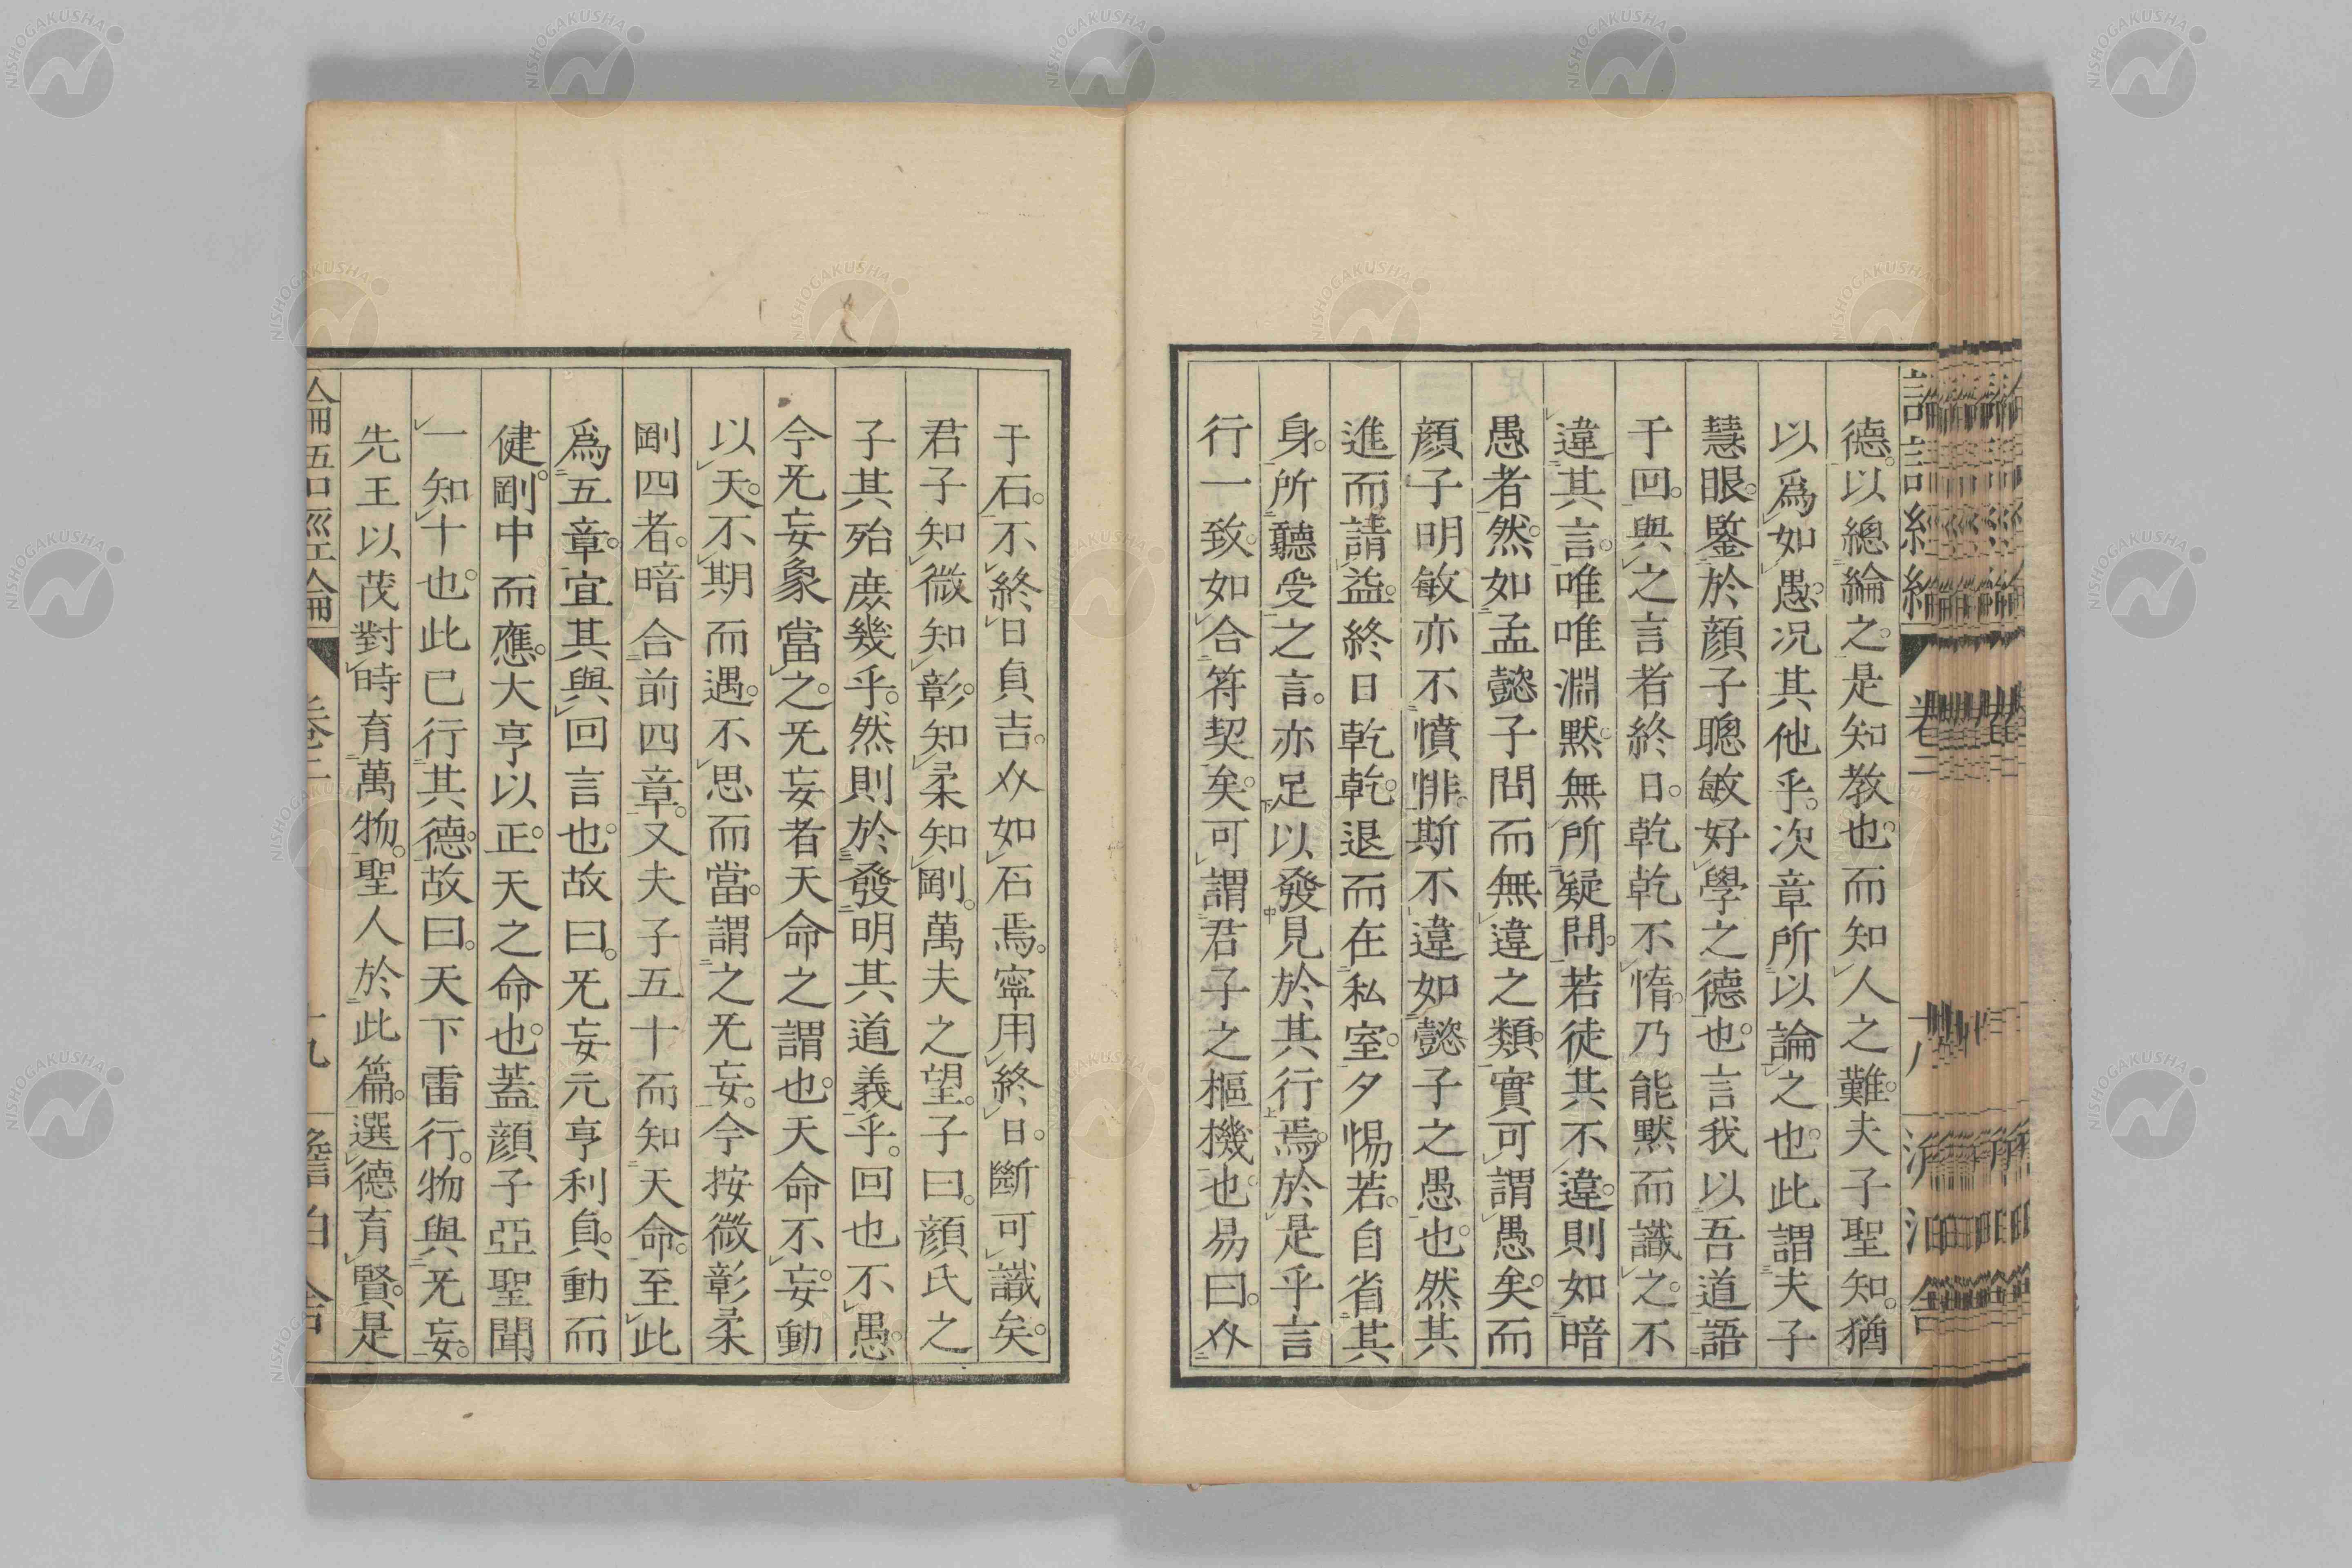 德。以總綸之。是知敎也。而知人之難。夫子聖知。猶
以爲如愚。況其他乎。次章所以論之也。此謂夫子
慧眼。鑒於顔子聰敏好學之德也。言我以吾道語
于回。與之言者終日。乾乾不惰。乃能默而識之。不
違其言。唯唯淵默。無所疑問。若徒其不違。則如暗
愚者。然如孟懿子問而無違之類。實可謂愚矣。而
顔子明敏亦不憤悱。斯不違如懿子之愚也。然其
進而請益。終日乾乾。退而在私室。夕惕若。自省其
身。所聽受之言。亦足以發見於其行焉。於是乎言
行一致。如合符契矣。可謂君子之樞機也。易曰。介
于石。不終日貞吉。介如石焉。寧用終日。斷可識矣。
君子知微知彰。知柔知剛。萬夫之望。子曰。顔氏之
子其殆庶幾乎。然則於發明其道義乎。回也不愚。
今旡妄象當之。旡妄者天命之謂也。天命不妄。動
以天。不期而遇。不思而當。謂之旡妄。今按微彰柔
剛四者。暗合前四章。又夫子五十而知天命。至此
爲五章。宜其與回言也。故曰。旡妄元亨利貞。動而
健。剛中而應。大亨以正。天之命也。蓋顔子亞聖聞
一知十也。此已行其德。故曰。天下雷行。物與旡妄。
先王以茂對時育萬物。聖人於此篇。選德育賢。是